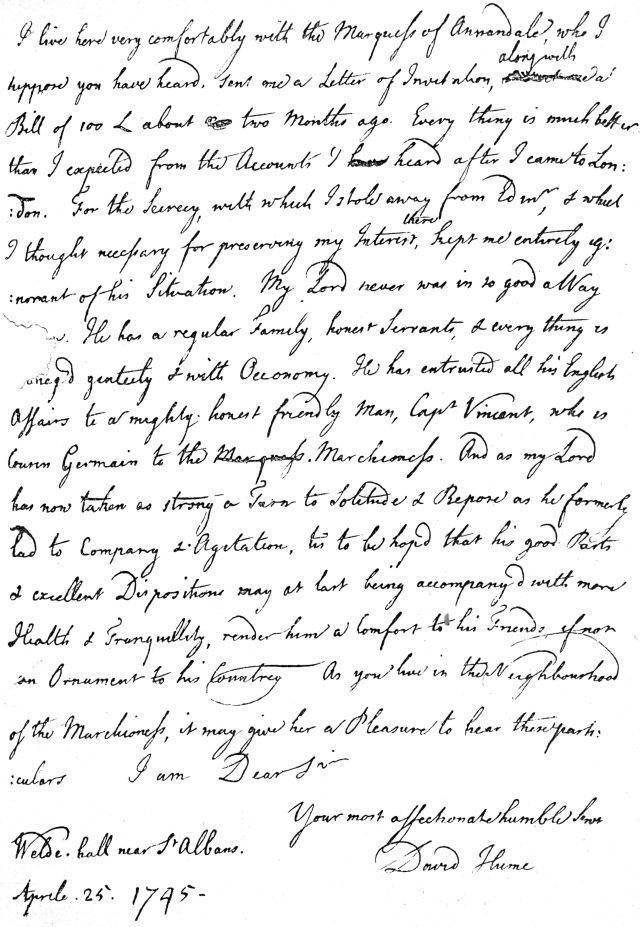 I live here very comfortably with the Marquess of Annandale, who I
along with
suppose you have heard, sent me a Letter of Invitation, a
Bill of 100 L about two Months ago. Every thing is much better
than I expected from the Accounts I heard after I came to Lon:
:don. For the Secrecy, with which I stole away from Edinr, & which
there
I thought necessary for preserving my Interest, kept me entirely ig:
:norant of his Situation. My Lord never was in so good a Way
He has a regular Family, honest Servants, & every thing is
aneg'd genteely & with Oeconomy. He has entrusted all his English
Affairs to a mighty honest friendly Man, Capt Vincent, who is
Cousin Germain to the Marquess. Marchioness. And as my Lord
has now taken as strong a Turn to Solitude & Repose as he formerly
had to Company & Agitation, tis to be hop'd that his good Parts
& excellent Dispositions may at last being accompany'd with more
Health & Tranquillity, render him a Comfort to his Friends if not
an Ornament to his Countrey As you live in the Neighbourhood
of the Marchioness, it may give her a Pleasure to hear these parti:
:culars I am Dear Sir
Your most affectionate humble Servt
Welde-hall near St Albans.
David Hume
Aprile. 25. 1745-